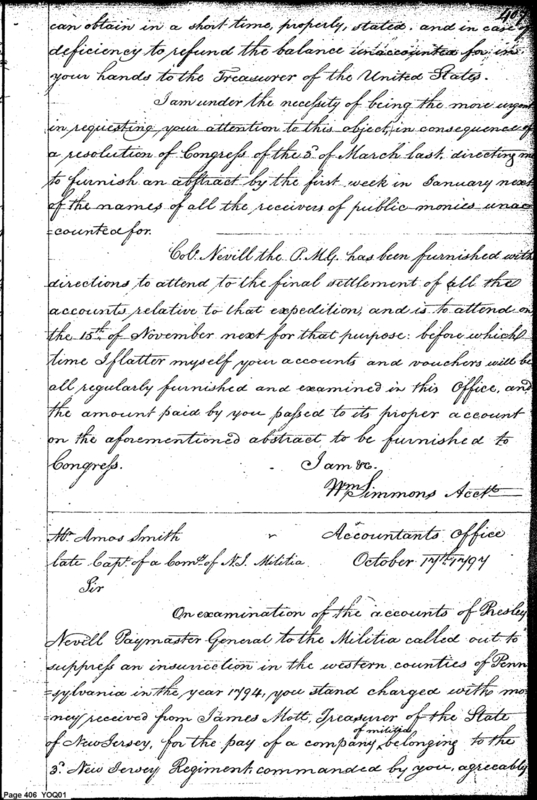 407
can obtain in a short time, properly, stated, and in case of
deficiency to refund the balance unaccounted for in
your hands to the Treasurer of the United States.
I am under the necessity of being the more urgent
in requesting your attention to this object, in consequence of
a resolution of Congress of the 3d. of March last, directing me
to furnish an abstract by the first week in January next
of the names of all the receivers of public monies unac
=counted for.
Colo. Nevill the P.M.G. has been furnished with
directions to attend to the final settlement of all the
accounts relative to that expedition, and is to attend on
the 15th. of November next for that purpose: before which
time I flatter myself your accounts and vouchers will be
all regularly furnished and examined in this Office, and
the amount paid by you passed to its proper account
on the aforementioned abstract to be furnished to
Congress. I am &c.
Wm. Simmons Acct.
Mr. Amos Smith Accountants Office
late Capt. of a Comy. of N.J. Militia October 17th. 1797
Sir
On examination of the accounts of Presley
Nevill Paymaster General to the Militia called out to
suppress an insurrection in the western counties of Penn
=sylvania in the year 1794, you stand charged with mo
=ney received from James Mott, Treasurer of the State
of New Jersey, for the pay of a company of militia belonging to the
3d. New Jersey Regiment commanded by you, agreeably
Page 406 YOQ01